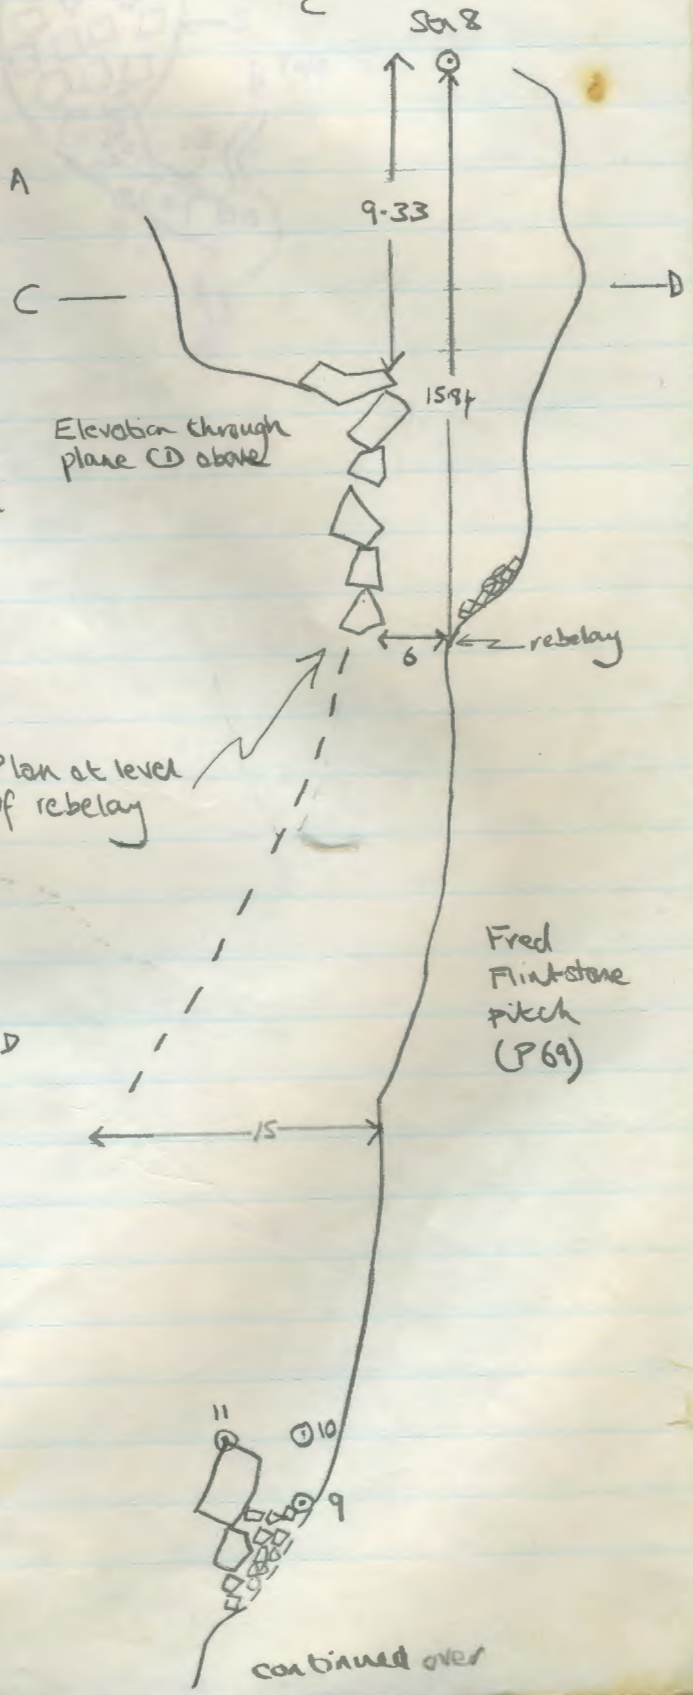 C
Stn 8
A
9.33
C
D
15.84
Elevation through
plane CD above
6
rebelay
Plan at level
of rebelay
Fred
Flintstone
pitch
(P69)
D
15
11
10
9
continued over